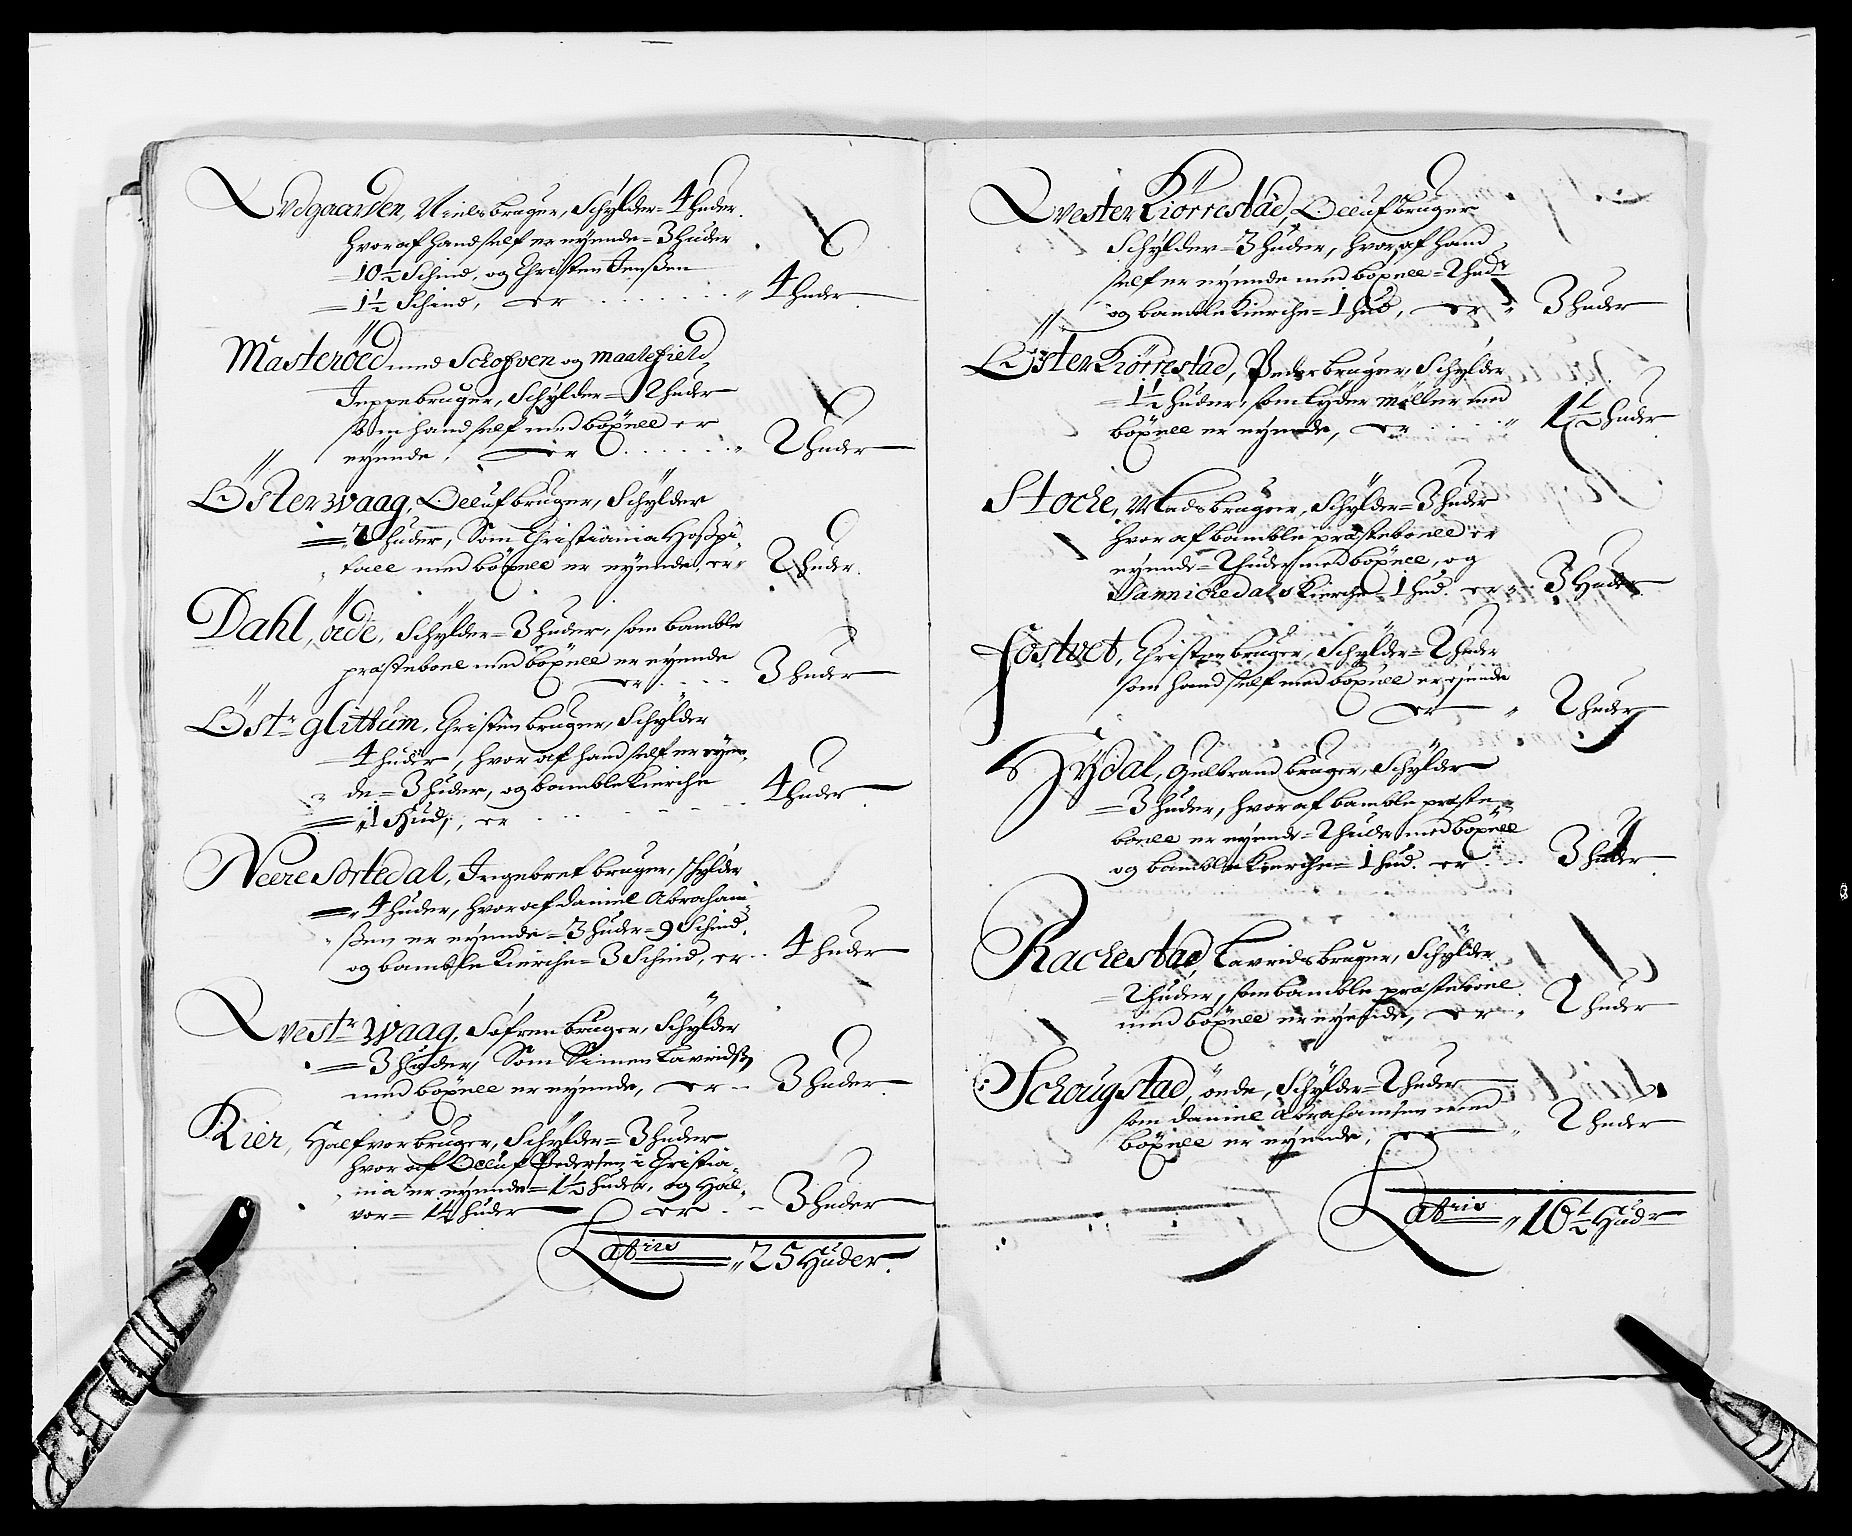 Wdgaarden, Niels bruger, Schylder = 4 huder
hvoraf hand self er eyende = 3 huder
= 10½ Schind, og Christen Jenßen
= 1½ Schind, er 4 huder
Masteröed med Schofven og maalefield
Jeppe bruger, Schylder = 2 huder
som hand self med böxell er
eyende, er 2 huder
Öster waag, Oelluf bruger, Schylder
= 2 huder, Som Christiania Hoßpi-
tall med böxell er eyende, er 2 huder.
Dahl, öede, Schylder = 3 huder, som bamble
præsteboel med böxell er eyende
er 3 huder
Östr glittum, Christen bruger, Schylder
= 4 huder, hvor af hand self er eyen-
de = 3 huder, og bamble Kierche
= 1 Hud, er 4 huder
Neere Sortedal, Ingebret bruger, schylder
= 4 huder, hvoraf daniel Abraham-
ßen er eyende = 3 huder = 9 Schind,
og bamble Kierche = 3 Schind, er 4 huder
Westr waag, Søfren bruger, Schylder
= 3 huder, Som Simen Lavridß
med böxell er eyende, er 3 huder
Kier, Halfvor bruger, Schylder = 3 huder
hvor af Oelluf Pedersen i Christia-
nia er eyende = 1½ huder, og Hal-
vor = 1½ huder er 3 huder
Latris 25 Huder.
Wester Kiörrestad, Oelluf bruger
Schylder = 3 huder, hvoraf hand
self er eyende med böxell = 2 hudr
og bamble Kierche = 1 hud, er 3 huder
Öster Kiörrestad, Peder bruger, Schylder
= 1½ huder, som lyder möller med
böxell er eyende, er 1½ huder
Stocke, Mads bruger, Schylder = 3 huder
hvor af bamble præsteboell er
eyende = 2 huder med böxell, og
Sannickedals Kierche 1 hud. er 3 Huder
Fostvet, Christen bruger, Schylder = 2 huder
som hand self med böxell er eyende
er 2 huder
Hydal, Gulbrand bruger, Schylder
= 3 huder, hvoraf bamble præste-
boell er eyende = 2 huder med böxell
og bamble Kierche = 1 hud. er 3 huder
Rackestad, Lavrids bruger, Schylder
= 2 huder, som bamble præsteboel
med böxell er eyende, er 2 huder
Schougstad, öede, Schylder = 2 huder
som daniel Abrahamsen med
böxell er eyende, er 2 huder
Latris 16½ Hudr